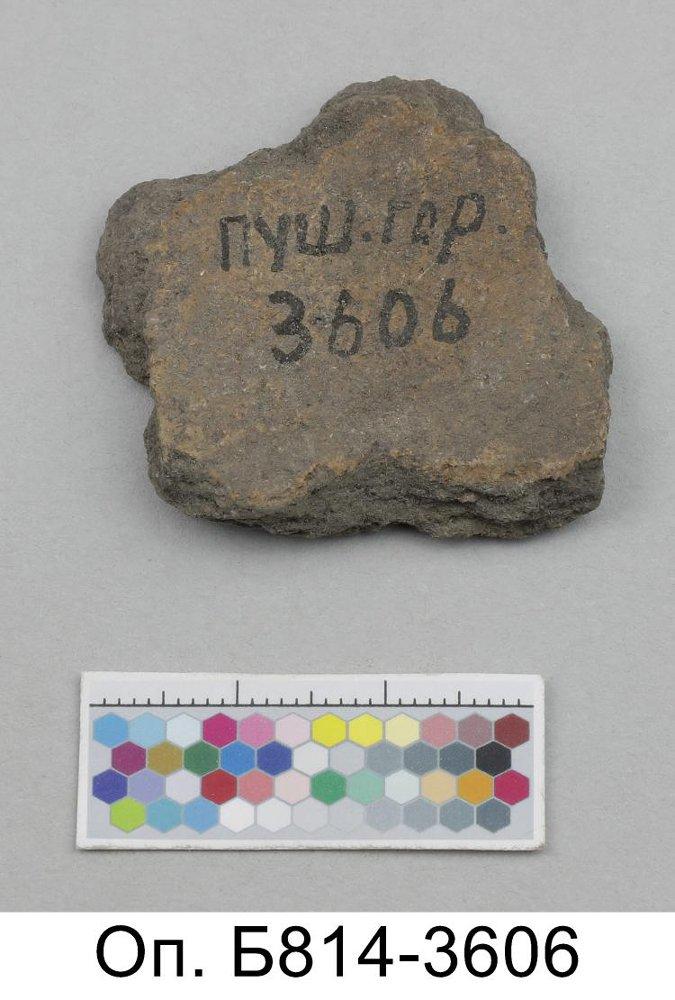 пуш.гор.
3606
Оп. Б814-3606